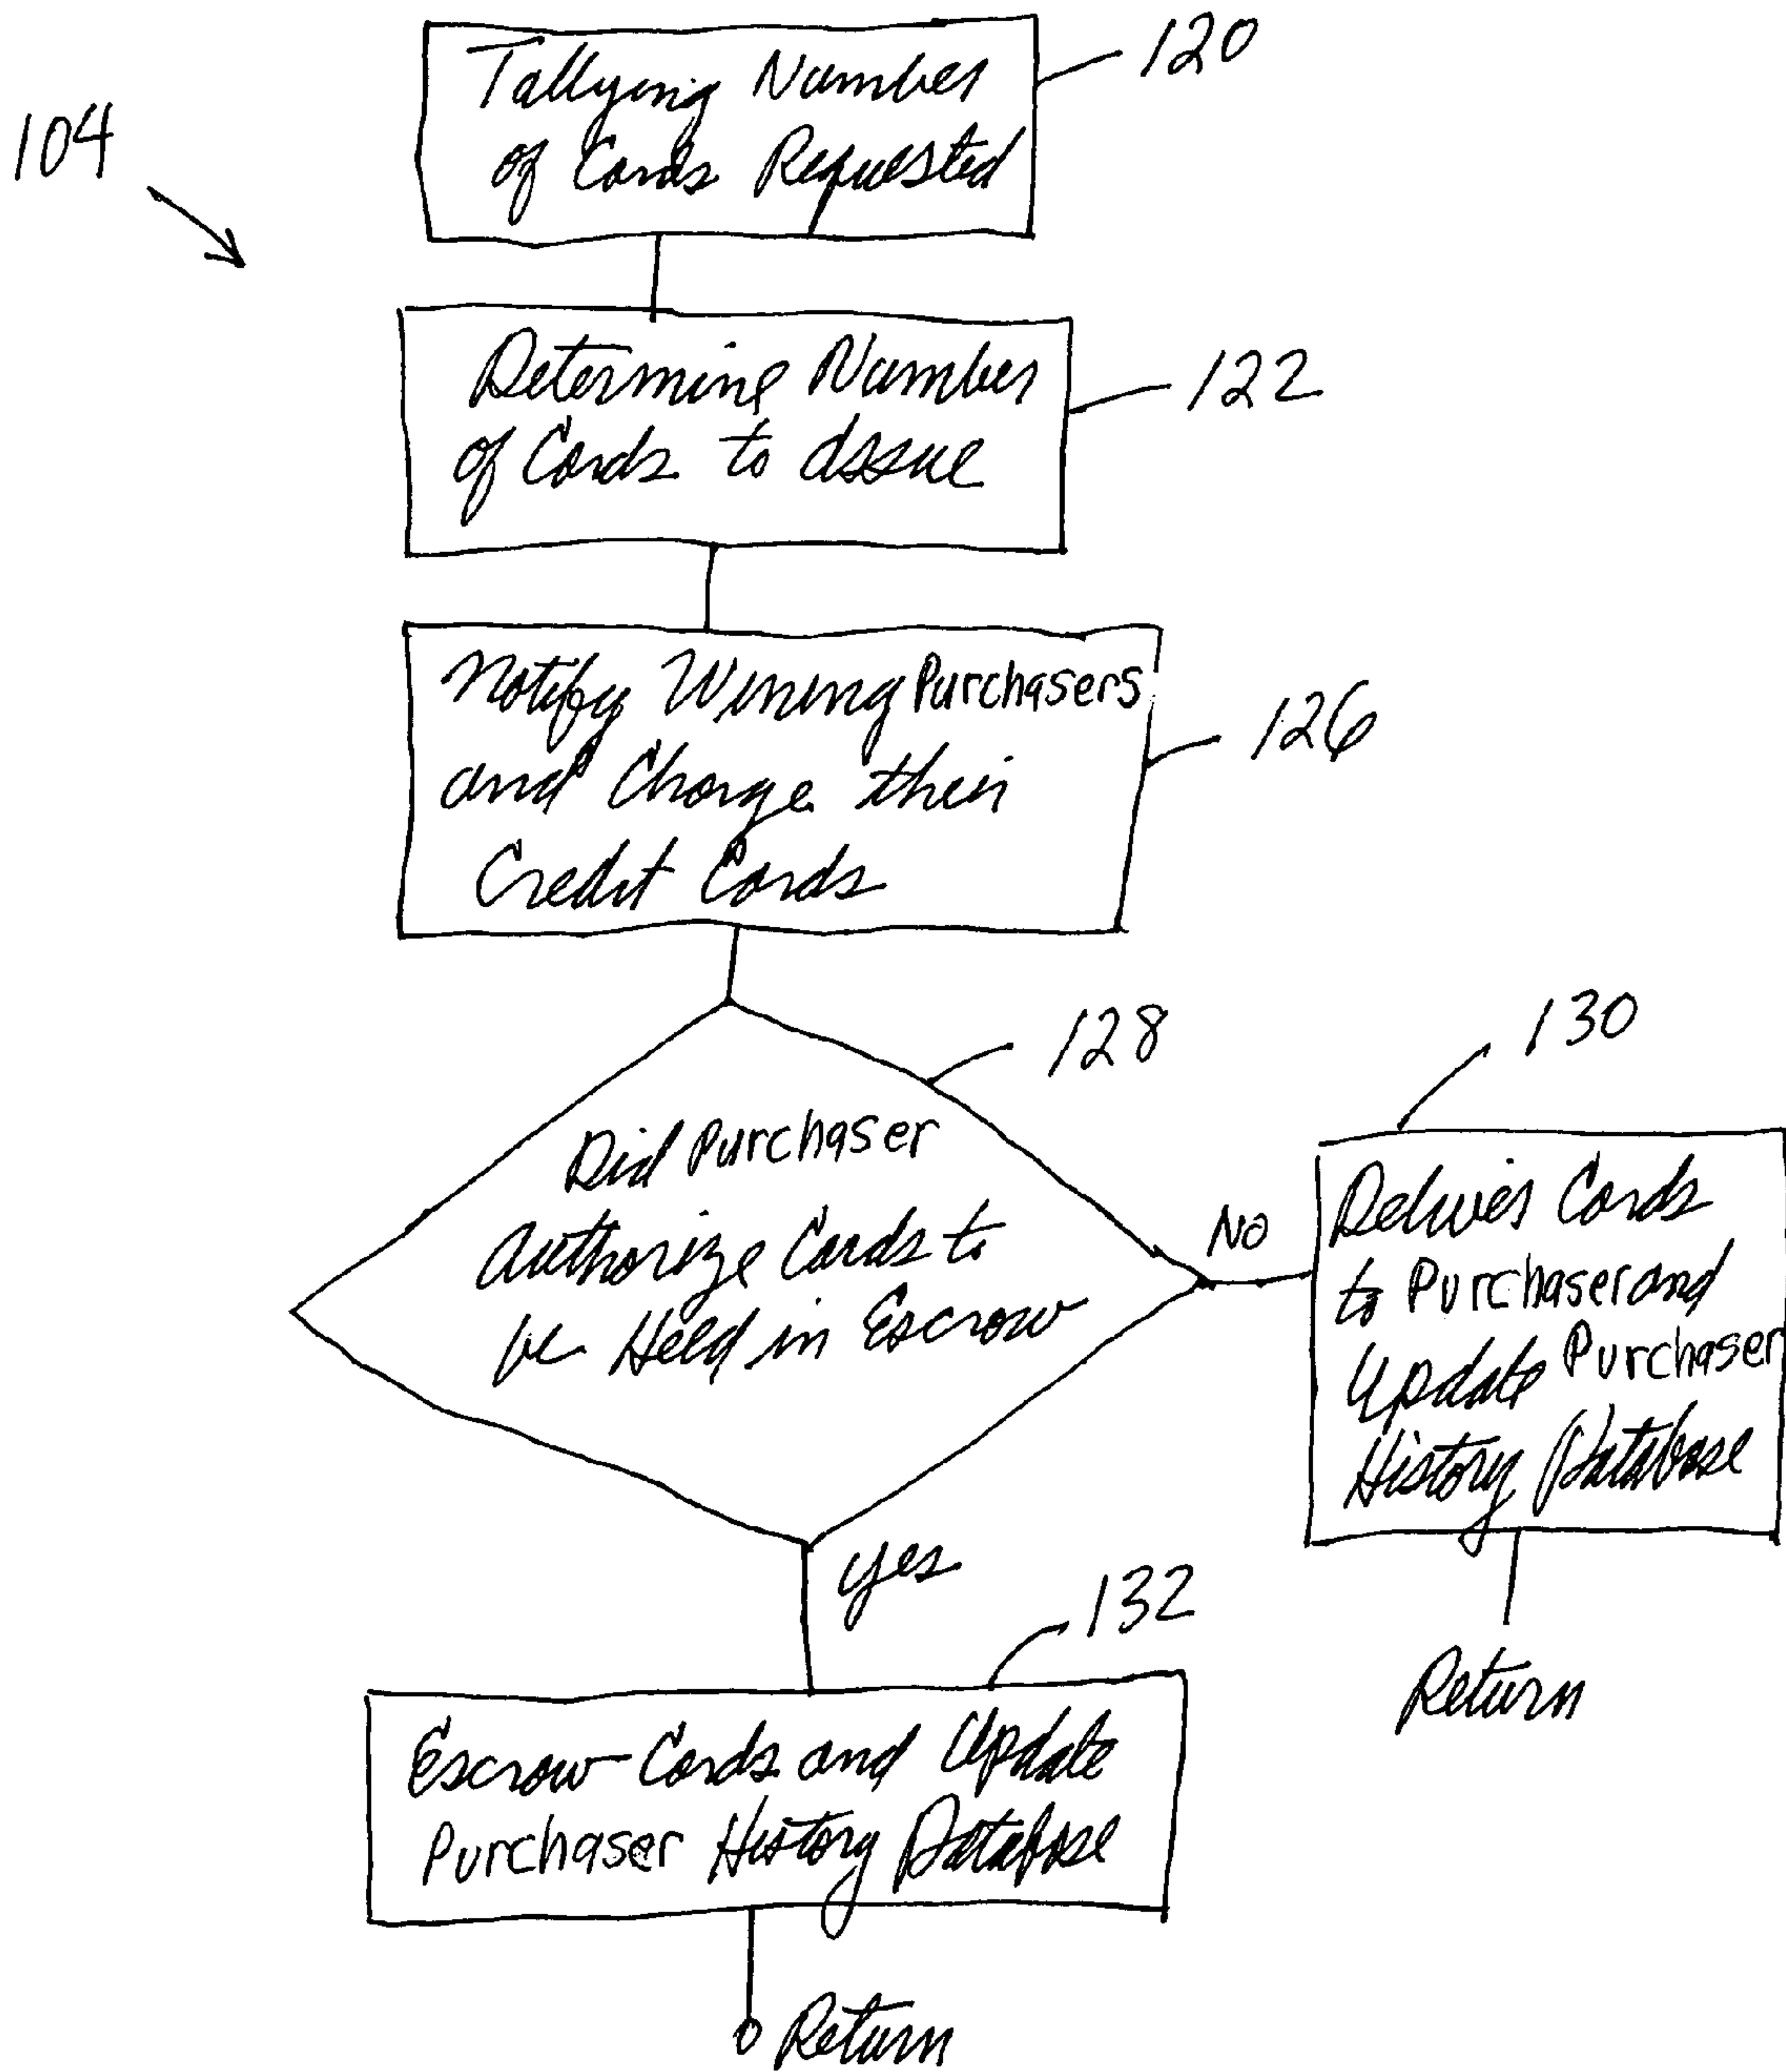 120
Tallying Number
of Cards Requested
104
122
Determine Number
of Cards to Issue
126
Notify Wining Purchasers
and Charge their
Credit Cards
128
Did Purchaser
Authorize Cards to
be Held in Escrow
130
No
Deliver Cards
to Purchaser and
Update Purchaser
History Database
Return
yes
132
Escrow Cards and Update
Purchaser History Database
Return